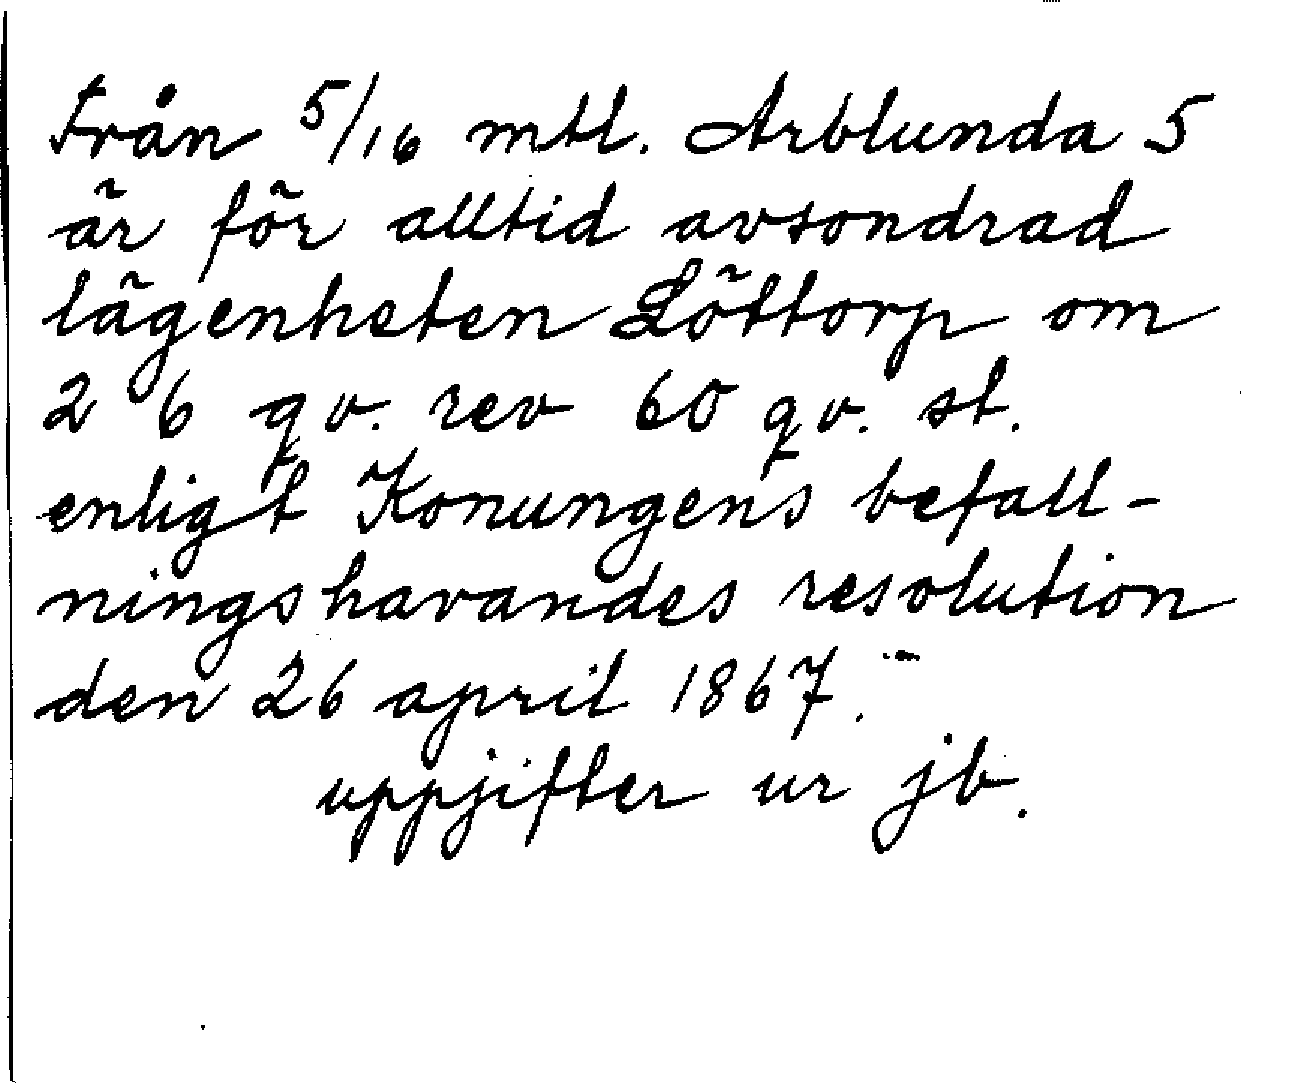 Från 5/16 mtl. Arblunda 5
är för alltid avsondrad
lägenheten Löttorp om
2 6 qv. rev 60 qv. st.
enligt Konungens befall-
ningshavandes resolution
den 26 april 1867.
uppjifter ur jb.